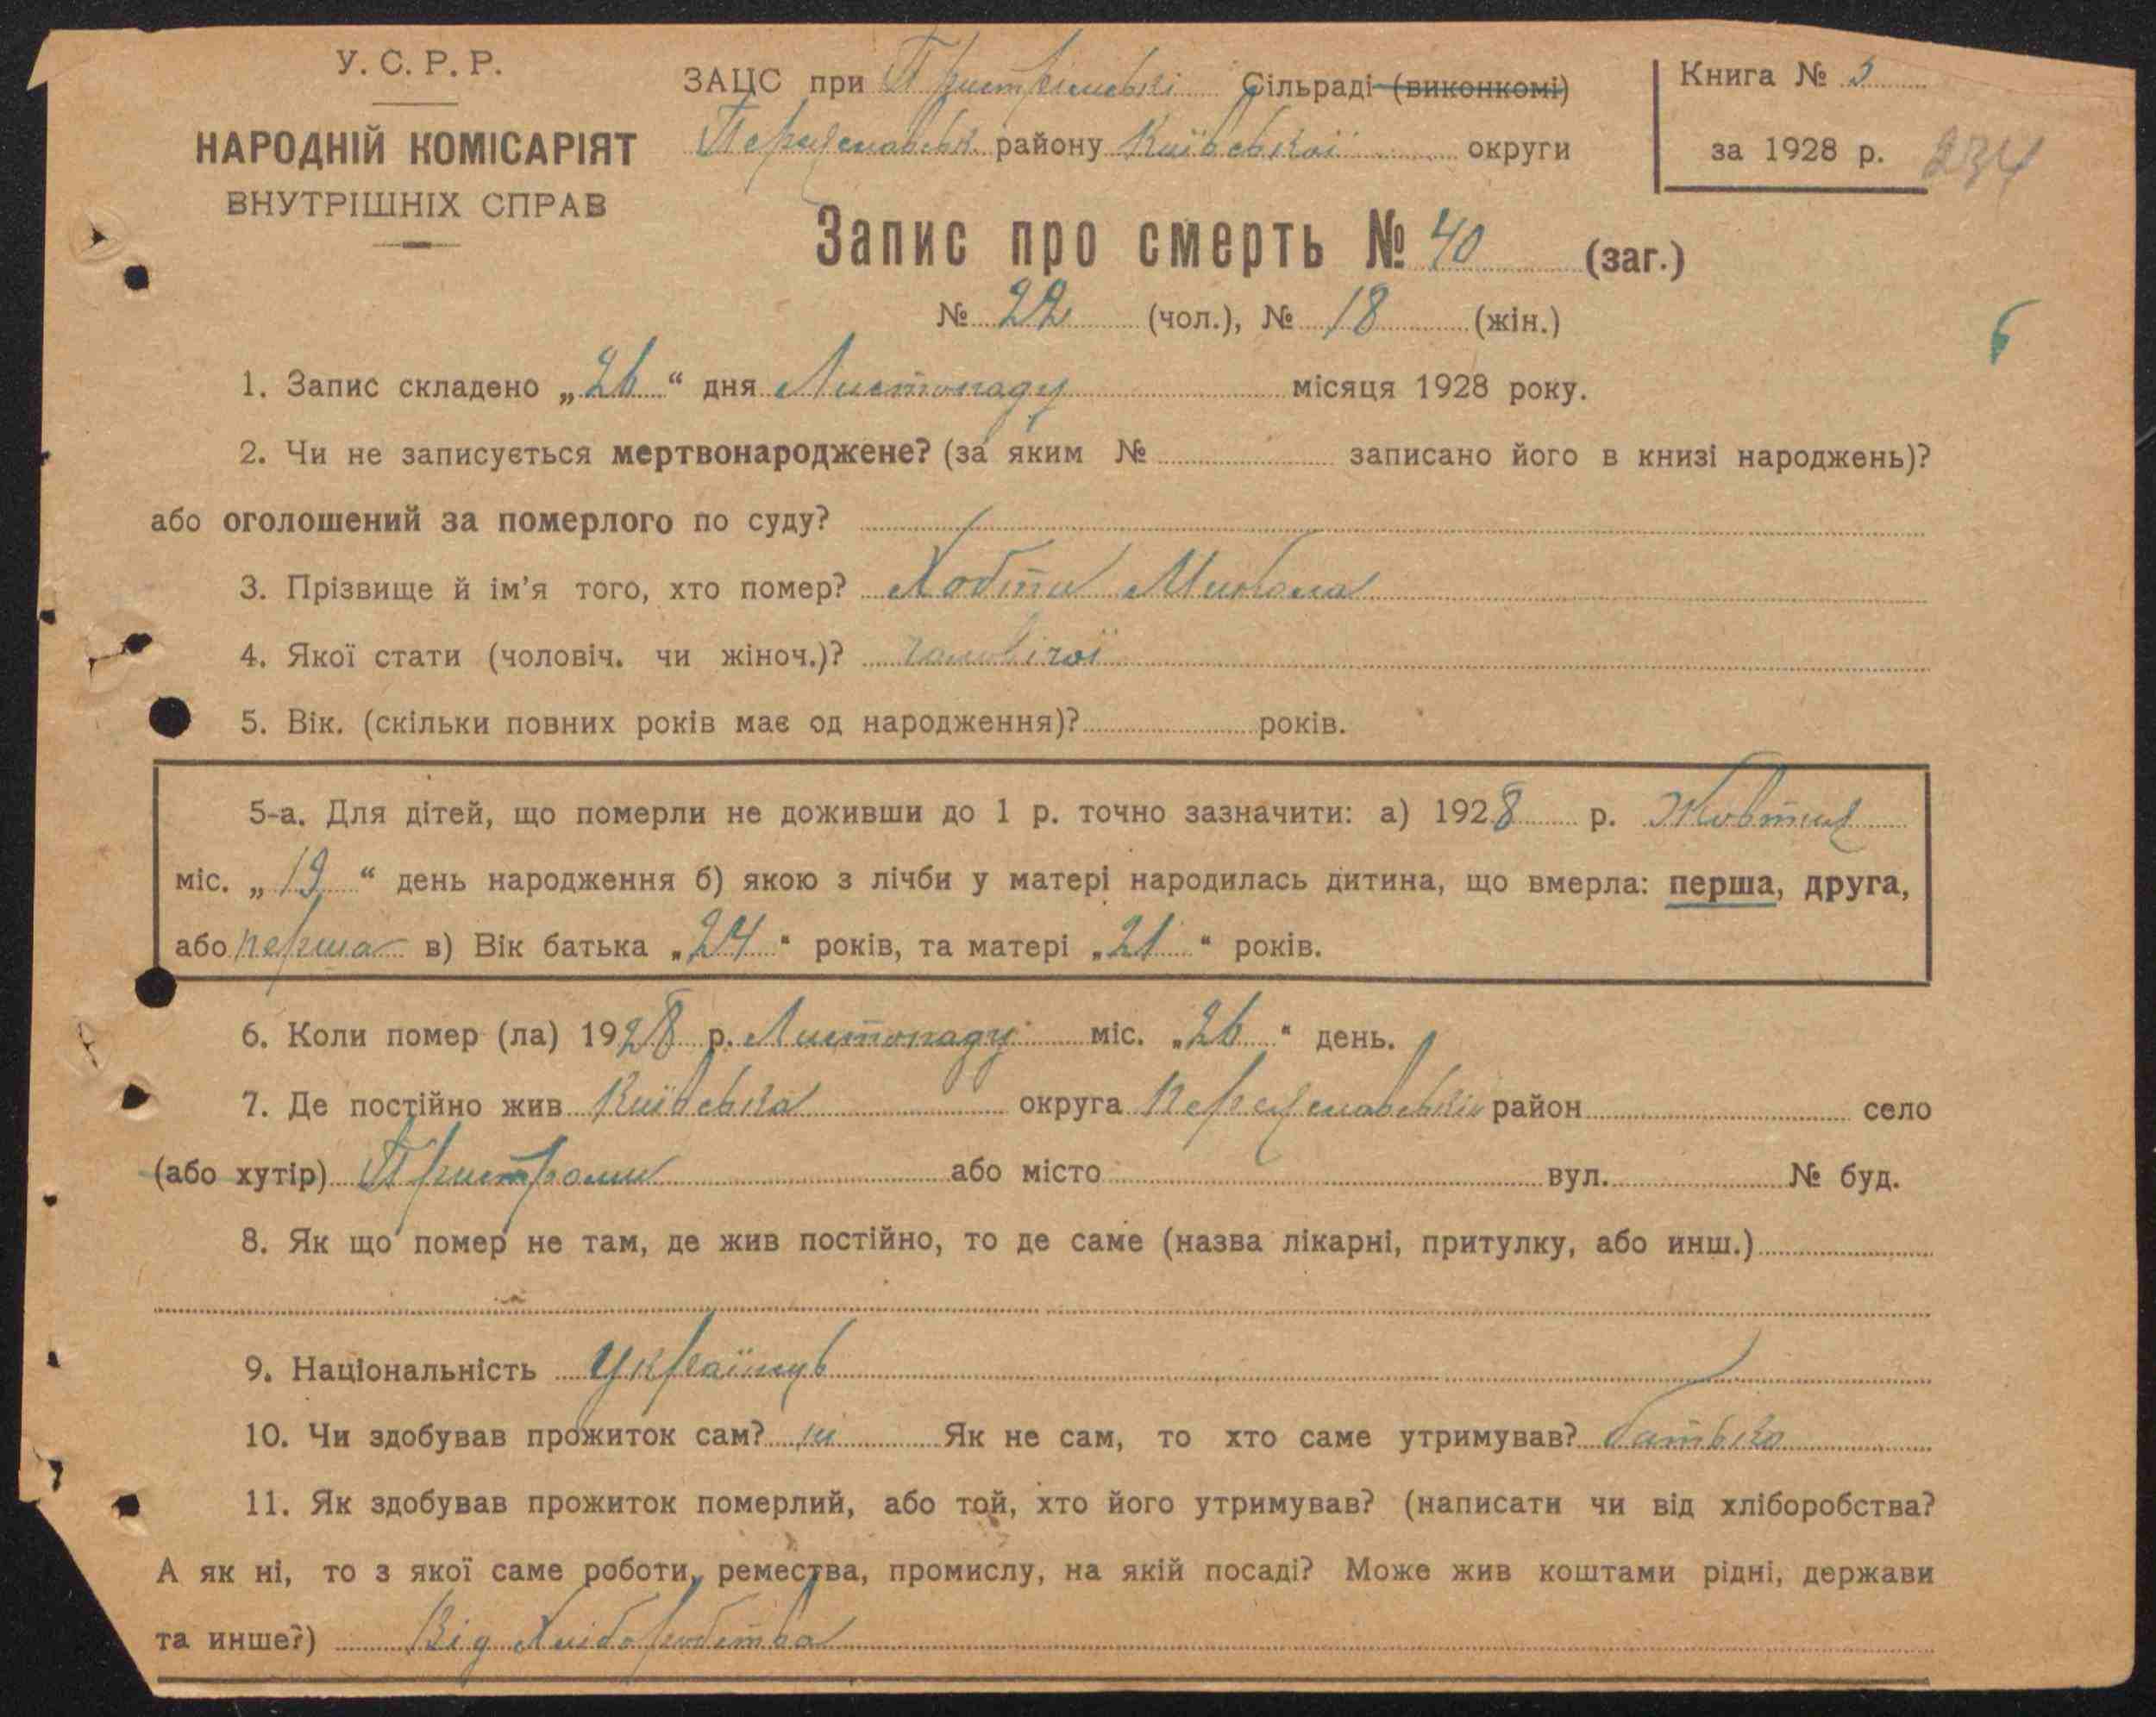 У. С. Р. Р.
НАРОДНІЙ КОМІСАРІЯТ
ВНУТРІШНІХ СПРАВ
ЗАЦС при Пристромській Сільраді (виконкомі)
Переяславськ району Київської округи
Книга № 3
за 1928 р. 234
Запис про смерть № 40 (заг.)
№ 22 (чол.), № 18 (жін.)
1. Запис складено „26“ дня Листопаду місяця 1928 року.
2. Чи не записується мертвонароджене? (за яким № записано його в книзі народжень)?
або оголошений за померлого по суду?
3. Прізвище й ім'я того, хто помер? Хобта Микола
4. Якої стати (чоловіч. чи жіноч.)? чоловічої
5. Вік. (скільки повних років має од народження)? років.
5-а. Для дітей, що померли не доживши до 1 р. точно зазначити: а) 1928 р. Жовтня
міс. „19“ день народження б) якою з лічби у матері народилась дитина, що вмерла: перша, друга,
або перша в) Вік батька „24“ років, та матері „21“ років.
6. Коли помер (ла) 1928 р. Листопаду міс. „26“ день.
7. Де постійно жив Київська округа Переяславський район село
(або хутір) Пристроми або місто вул. № буд.
8. Як що помер не там, де жив постійно, то де саме (назва лікарні, притулку, або инш.)
9. Національність Українець
10. Чи здобував прожиток сам? ні Як не сам, то хто саме утримував? батько
11. Як здобував прожиток померлий, або той, хто його утримував? (написати чи від хліборобства?
А як ні, то з якої саме роботи, ремества, промислу, на якій посаді? Може жив коштами рідні, держави
та инше?) Від Хліборобства